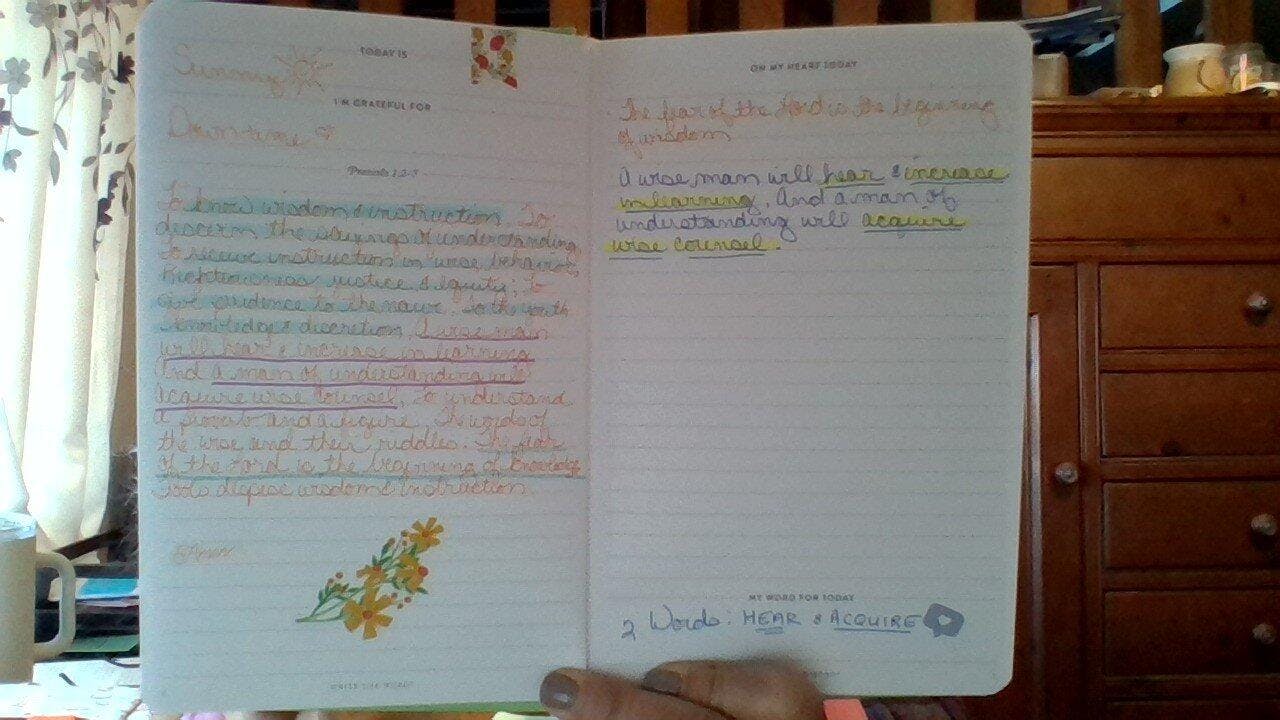 TODAY IS
Sunny
I'M GRATEFUL FOR
Downtime
Proverbs 1:2-7
To know wisdom & instruction, To
discern the sayings of understanding,
To receive instruction in wise behavior,
Righteousness justice & equity; To
give prudence to the naive, To the youth
knowledge & discretion, A wise man
will hear & increase in learning
And a man of understanding will
acquire wise counsel, To understand
a proverb and a figure, The words of
the wise and their riddles. The fear
of the Lord is the beginning of knowledge
Fools despise wisdom & instruction.
WRITE THE WORD
ON MY HEART TODAY
The fear of the Lord is the beginning
of wisdom
A wise man will hear & increase
in learning, And a man of
understanding will acquire
wise counsel.
MY WORD FOR TODAY
2 Words: HEAR & ACQUIRE